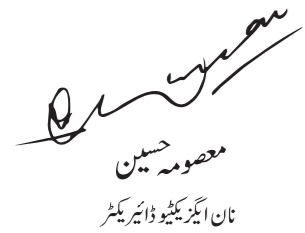 معصومہ حسین
نان ایگزیکٹیو ڈائیریکٹر